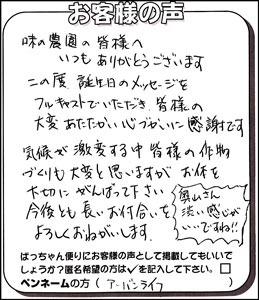 お客様の声
味の農園の皆様へ
いつもありがとうございます
この度 誕生日のメッセージを
フルキャストでいただき、皆様の
大変あたたかい心づかいに感謝です
気候が激変する中 皆様の作物
づくりも大変と思いますが お体を
大切に がんばって下さい
今後とも長いお付合いを
よろしくおねがいします。
奥山さん
渋い感じが
いいですね!!
ばっちゃん便りにお客様の声として掲載してもいいで
しょうか?匿名希望の方は✓を記入して下さい。□
ペンネームの方(アーバンライフ)